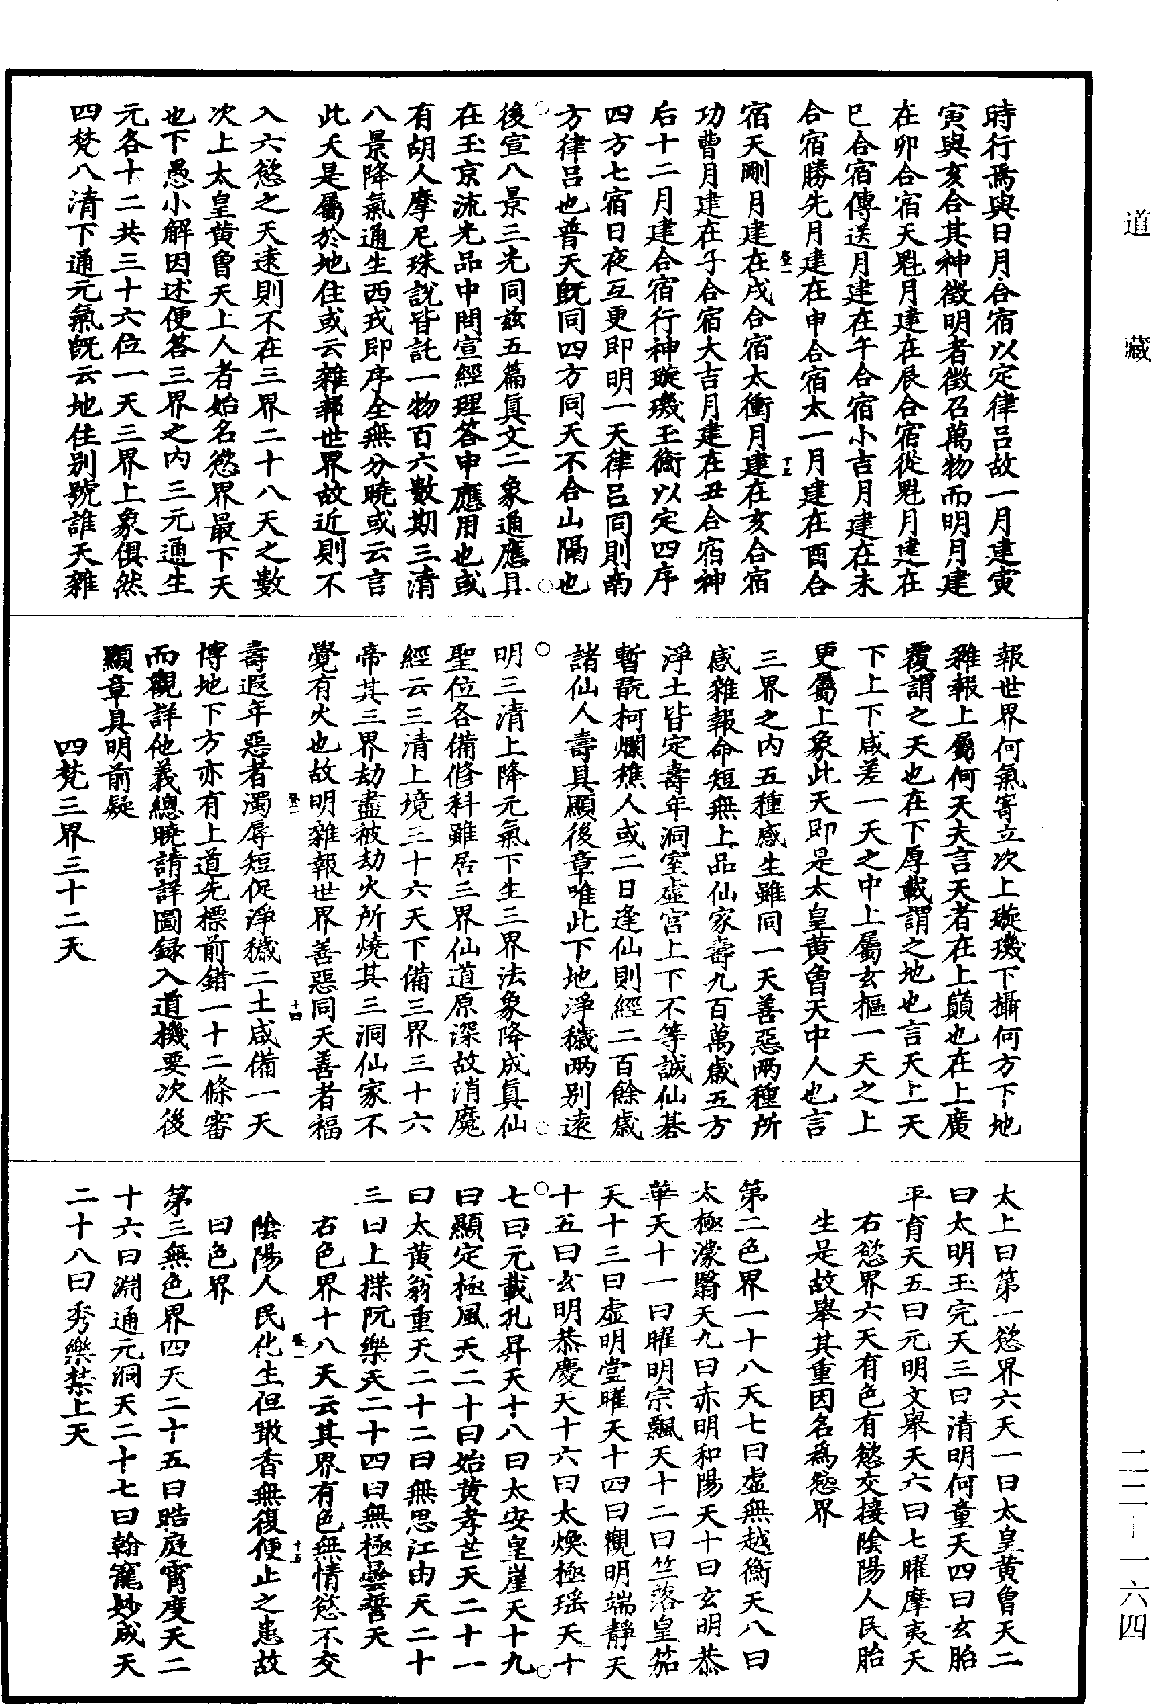 道藏
二二—一六四
時行焉與日月合宿以定律呂故一月建寅
寅與亥合其神徵明者徵召萬物而明月建
在卯合宿天魁月建在辰合宿從魁月建在
巳合宿傳送月建在午合宿小吉月建在未
合宿勝先月建在申合宿太一月建在酉合
宿天剛月建在戌合宿太衝月建在亥合宿
功曹月建在子合宿大吉月建在丑合宿神
后十二月建合宿行神璇璣玉衡以定四序
四方七宿日夜互更即明一天律呂同則南
方律呂也普天既同四方同天不合山隔也
後宣八景三光同茲五篇真文二象通應具
在玉京流光品中問宣經理答申應用也或
有胡人摩尼珠說皆託一物百六數期三清
八景降氣通生西戎即序全無分曉或云言
此天是屬於地住或云雜報世界故近則不
入六慾之天遠則不在三界二十八天之數
次上太皇黃曾天上人者始名慾界最下天
也下愚小解因述便答三界之內三元通生
元各十二共三十六位一天三界上象俱然
四梵八清下通元氣既云地住別號誰天雜
報世界何氣寄立次上璇璣下攝何方下地
雜報上屬何天夫言天者在上顛也在上廣
覆謂之天也在下厚載謂之地也言天上天
下上下咸差一天之中上屬玄樞一天之上
更屬上象此天即是太皇黃曾天中人也言
三界之內五種感生雖同一天善惡兩種所
感雜報命短無上品仙家壽九百萬歲五方
淨土皆定壽年洞室虛宮上下不等誠仙棊
暫翫柯爛樵人或二日逢仙則經二百餘歲
諸仙人壽具顯後章唯此下地淨穢兩別遠
明三清上降元氣下生三界法象降成真仙
聖位各備修科雖居三界仙道原深故消魔
經云三清上境三十六天下備三界三十六
帝其三界劫盡被劫火所燒其三洞仙家不
覺有火也故明雜報世界善惡同天善者福
壽遐年惡者濁辱短促淨穢二土咸備一天
博地下方亦有上道先標前錯一十二條審
而觀詳他義總曉請詳圖錄入道機要次後
顯章具明前疑
四梵三界三十二天
太上曰第一慾界六天一曰太皇黃曾天二
曰太明玉完天三曰清明何童天四曰玄胎
平育天五曰元明文舉天六曰七曜摩夷天
右慾界六天有色有慾交接陰陽人民胎
生是故舉其重因名為慾界
第二色界一十八天七曰虛無越衡天八曰
太極濛翳天九曰赤明和陽天十曰玄明恭
華天十一曰曜明宗飄天十二曰竺落皇笳
天十三曰虛明堂曜天十四曰觀明端靜天
十五曰玄明恭慶天十六曰太煥極瑶天十
七曰元載孔昇天十八曰太安皇崖天十九
曰顯定極風天二十曰始黃孝芒天二十一
曰太黃翁重天二十二曰無思江由天二十
三曰上揲阮樂天二十四曰無極曇誓天
右色界十八天云其界有色無情慾不交
陰陽人民化生但噉香無復便止之患故
曰色界
第三無色界四天二十五曰晧庭霄度天二
十六曰淵通元洞天二十七曰翰寵妙成天
二十八曰秀樂禁上天